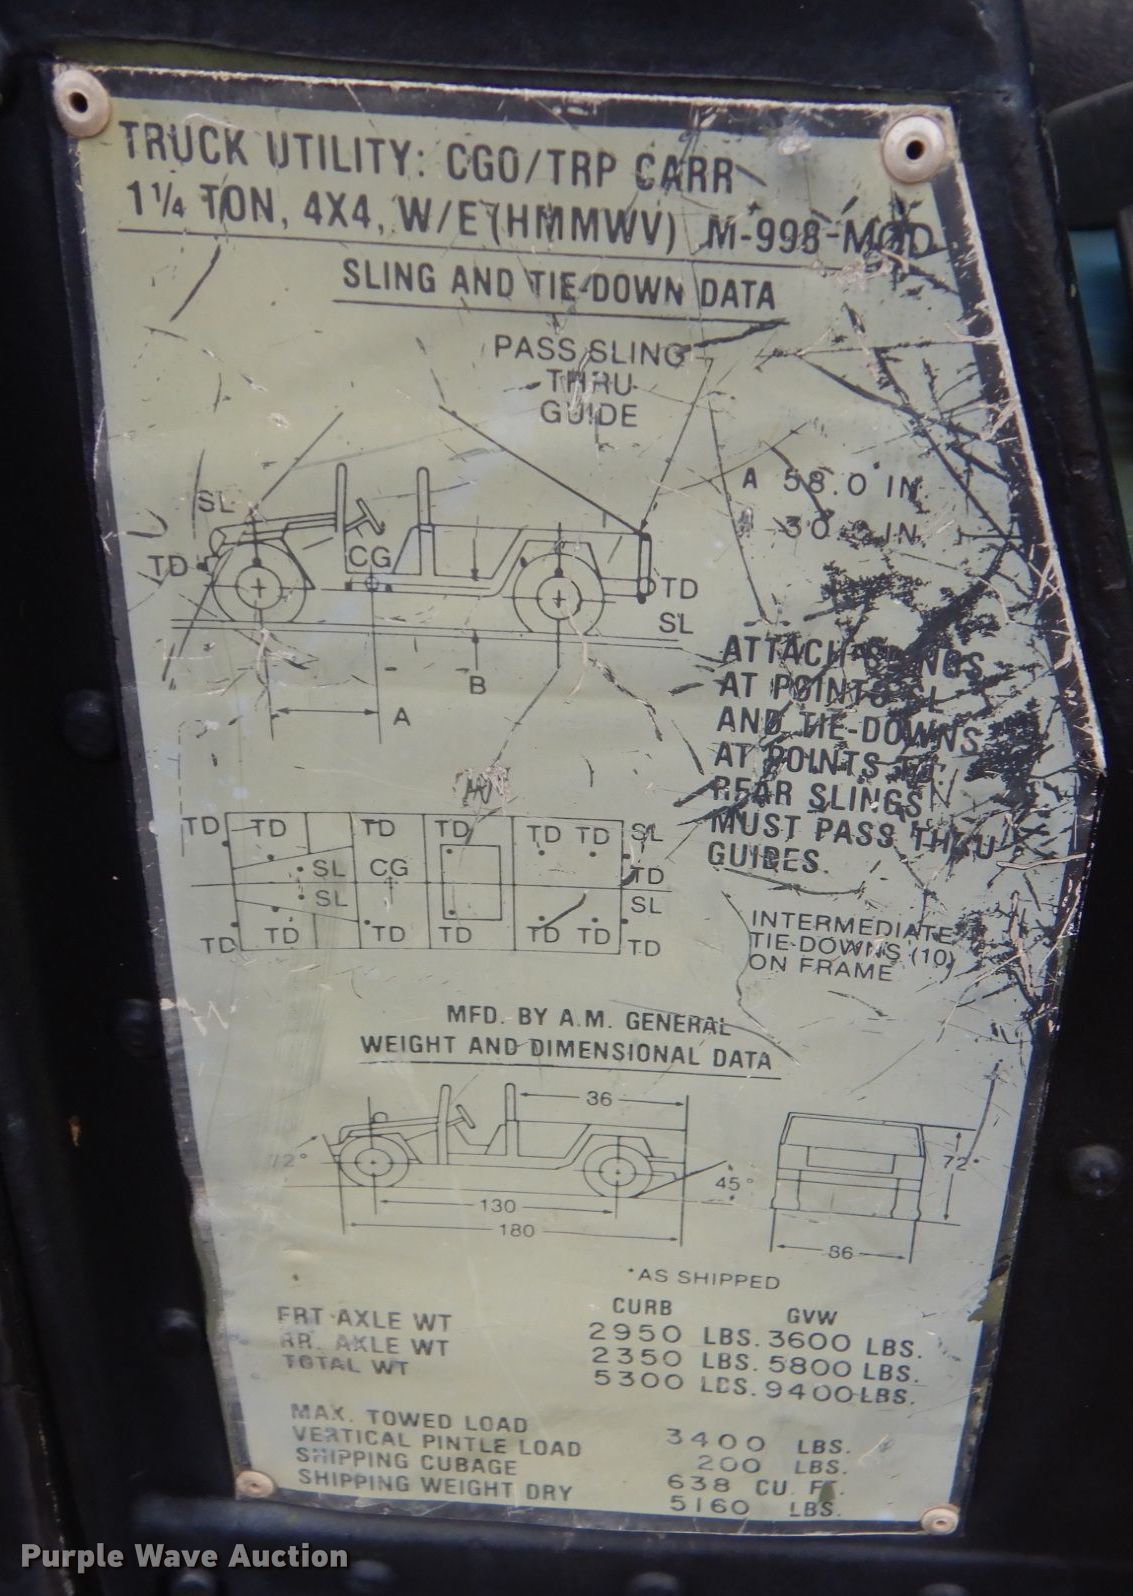 TRUCK UTILITY: CGO/TRP CARR
1¼ TON, 4X4, W/E (HMMWV) M-998-MOD
SLING AND TIE-DOWN DATA
PASS SLING
THRU
GUIDE
A 58.0 IN.
30. IN.
SL
TD
CG
TD
SL
B
A
ATTACH SLINGS
AT POINTS SL
AND TIE-DOWNS
AT POINTS TD.
REAR SLINGS
MUST PASS THRU
GUIDES.
TD TD TD TD TD TD SL
SL CG TD
SL SL
TD TD TD TD TD TD TD
INTERMEDIATE
TIE-DOWNS (10)
ON FRAME
MFD. BY A.M. GENERAL
WEIGHT AND DIMENSIONAL DATA
36
72°
45°
72*
130
180
86
*AS SHIPPED
CURB GVW
FRT AXLE WT 2950 LBS. 3600 LBS.
RR. AXLE WT 2350 LBS. 5800 LBS.
TOTAL WT 5300 LBS. 9400 LBS.
MAX. TOWED LOAD 3400 LBS.
VERTICAL PINTLE LOAD 200 LBS.
SHIPPING CUBAGE 638 CU. FT.
SHIPPING WEIGHT DRY 5160 LBS.
Purple Wave Auction